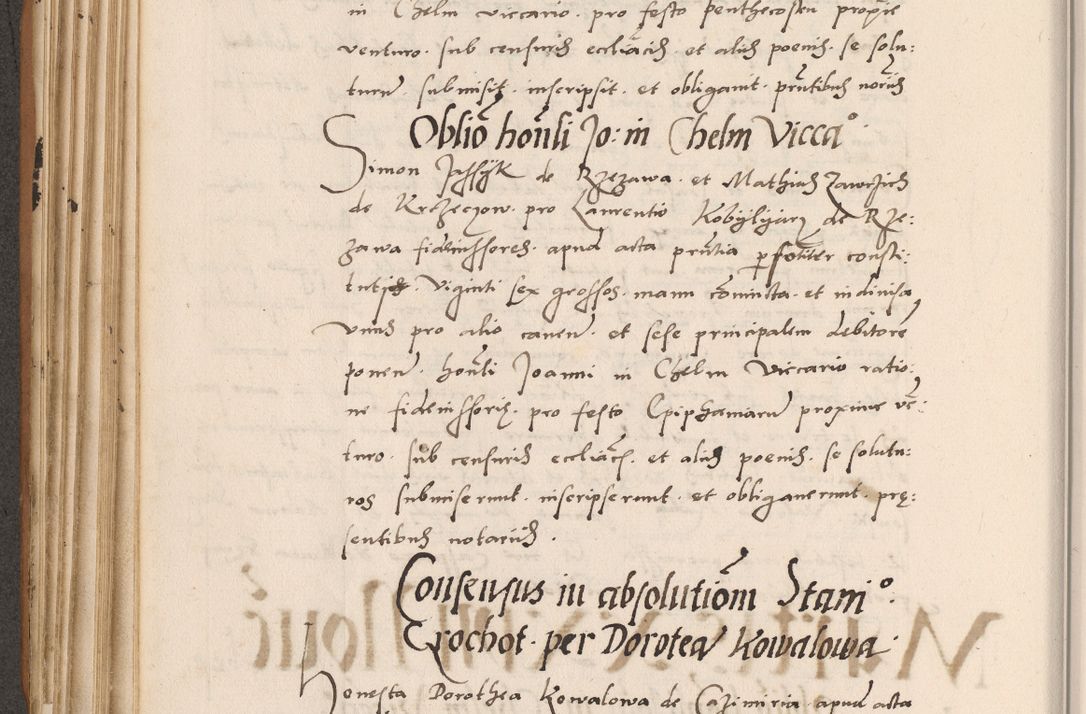 in Chelm viccario. pro festo penthecosten proxīe
venturo. sub censuris eccliācis. et aliis poenis. se solu:
turum. submisit. inscripsit. et obligauit. prñtibus notariis
Obliō honli Jo: in Chelm Vicca°.
Simon Jassyk de Rzezawa. et Mathias Zawrsich
de Krczeczow. pro Laurentio Kobylyarz de Rze:
zawa fideiussores. apud acta prñtia personaliter consti:
tuti. Viginti sex grossos. manu cōiuncta. et indiuisa
vnus pro alio cauen. et sese principalem debitorē
ponen. honli Joanni in Chelm Viccario ratio:
ne fideiussorię. pro festo Epiphaniarum proxime vē:
turo. sub censuris eccliācis. et aliis poenis. se solutu:
ros submiserunt. inscripserunt. et obligauerunt. prę:
sentibus notariis.
Consensus in absolutiōm Stani°:
Grochot. per Dorotea Kowalowa.
Honesta Dorothea Kowalowa de Cazimiria apud acta